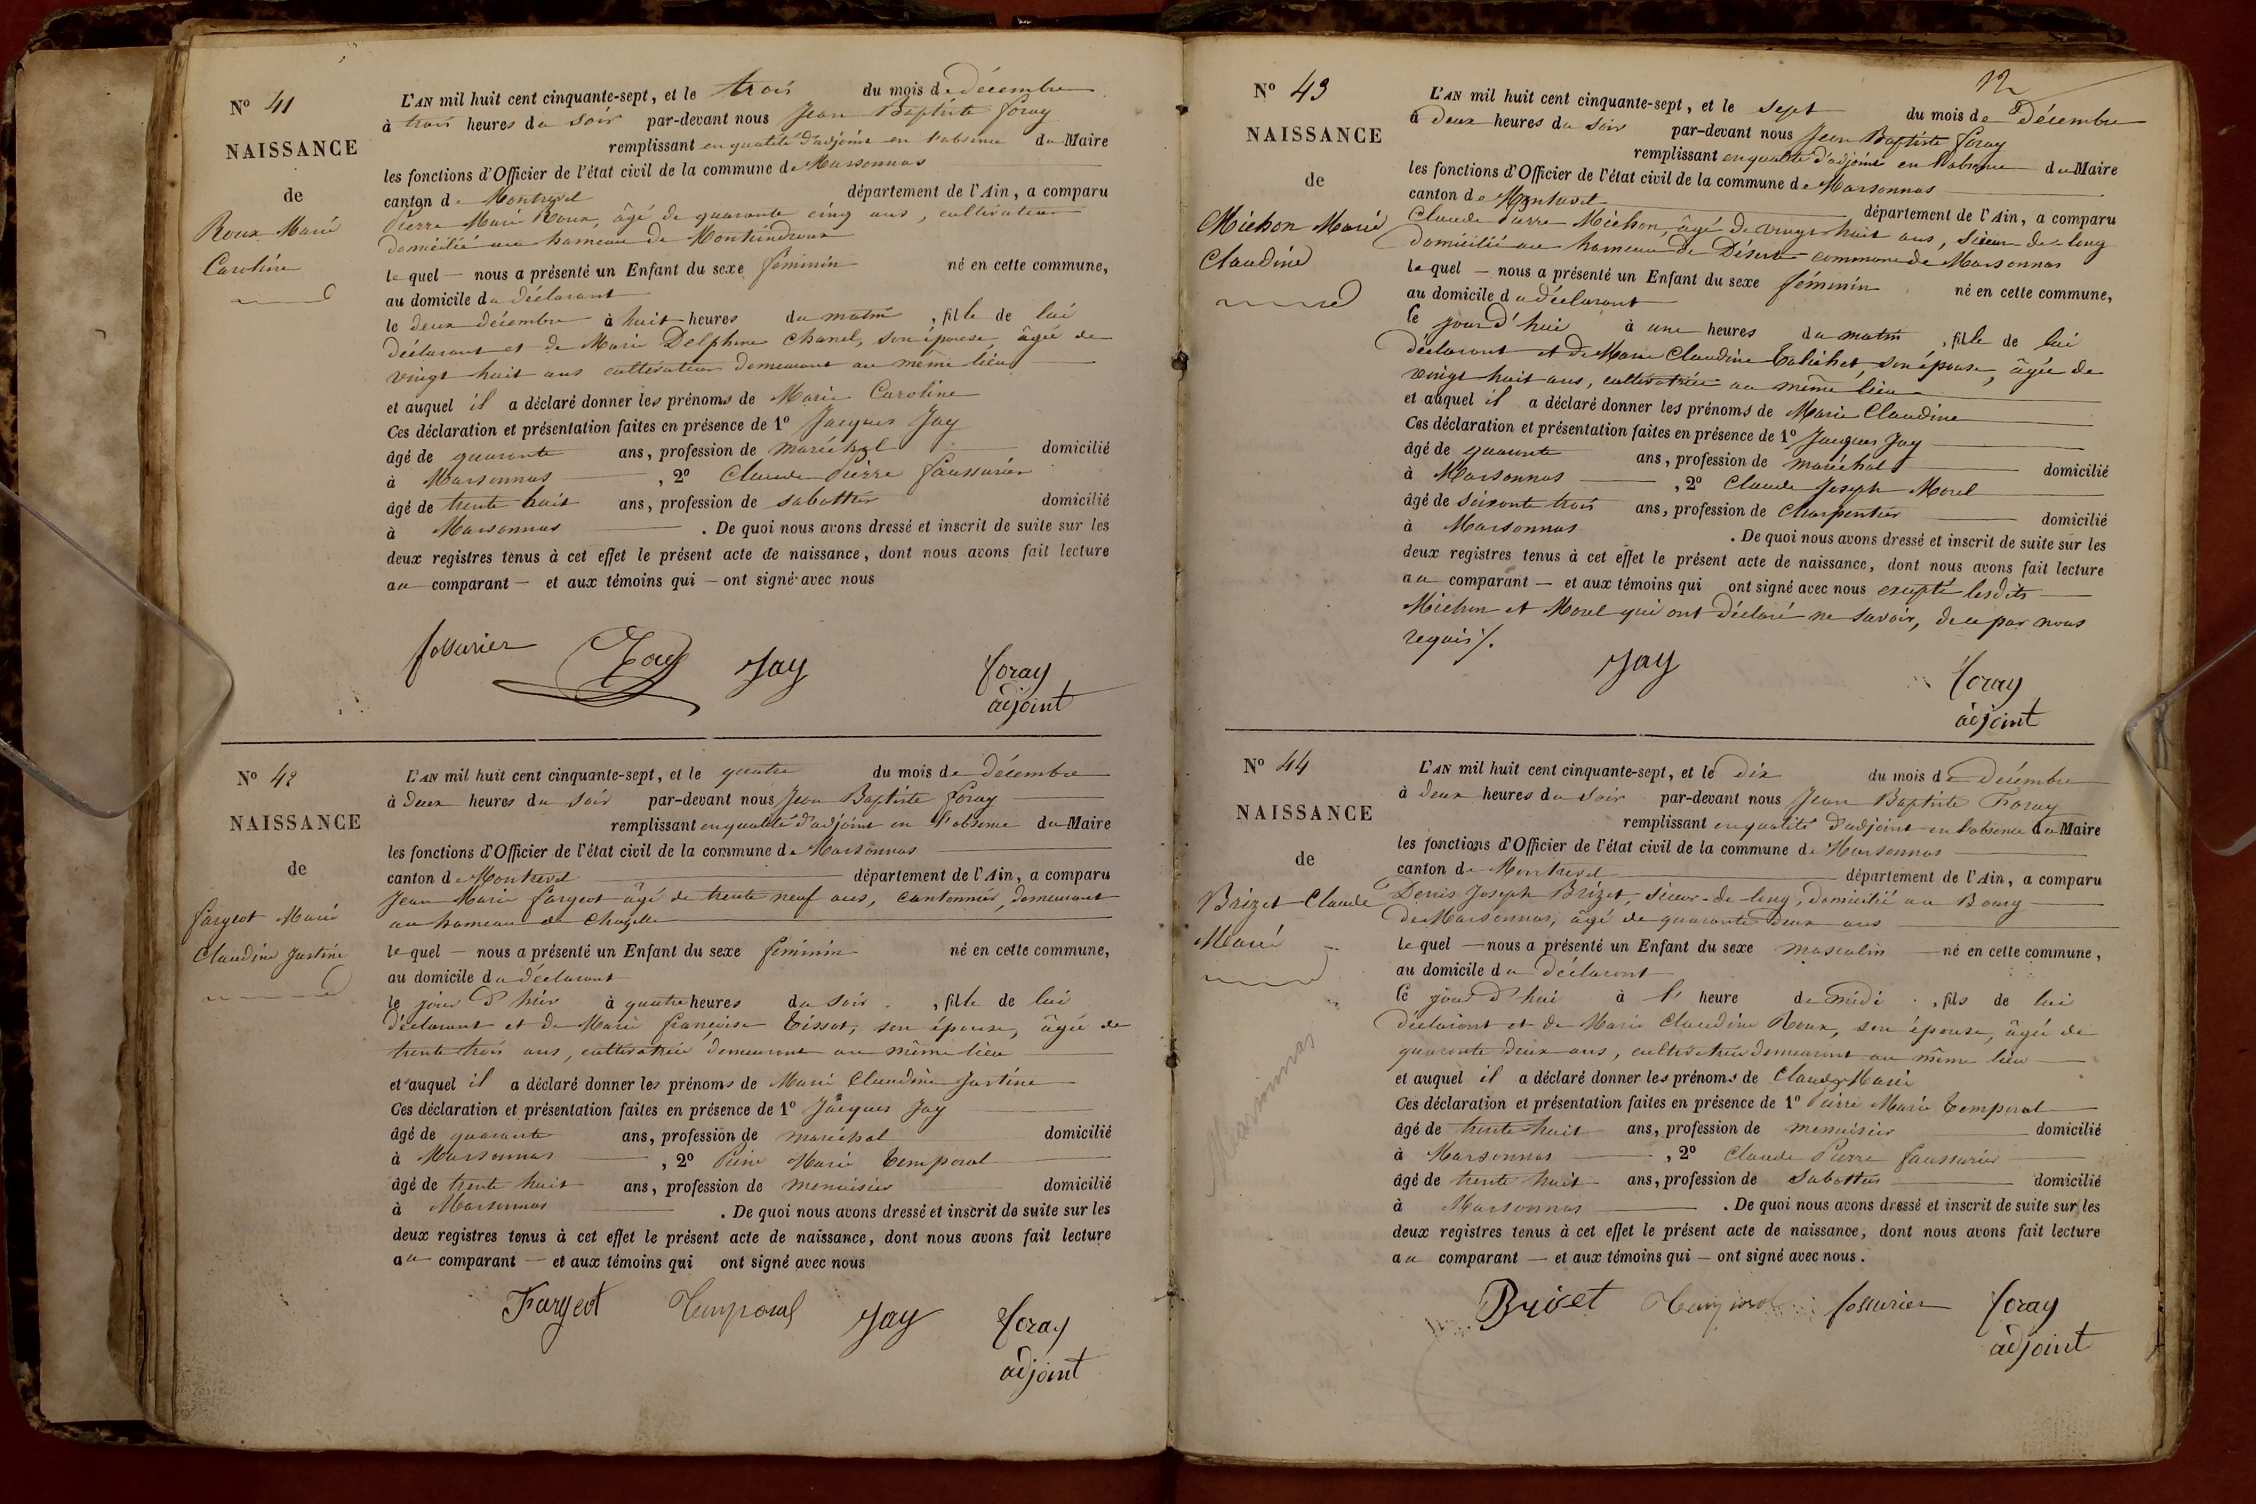 N° 41
NAISSANCE
de
Roux Marie
Caroline
L'AN mil huit cent cinquante-sept, et le trois du mois de décembre
à trois heures du soir par-devant nous Jean Baptiste Foray
remplissant en qualité d'adjoint en l'absence du Maire
les fonctions d'Officier de l'état civil de la commune de Marsonnas
canton de Montrevel département de l'Ain, a comparu
Pierre Marie Roux, âgé de quarante cinq ans, cultivateur
domicilié au hameau de
le quel — nous a présenté un Enfant du sexe féminin né en cette commune,
au domicile du déclarant
le deux décembre à huit heures du matin, fille de lui
déclarant et de Marie Delphine Chanel, son épouse âgée de
vingt huit ans cultivateur demeurant au même lieu
et auquel il a déclaré donner les prénoms de Marie Caroline
Ces déclaration et présentation faites en présence de 1° Jacques Jay
âgé de quarante ans, profession de maréchal domicilié
à Marsonnas, 2° Claude Pierre Faussurier
âgé de trente huit ans, profession de sabottier domicilié
à Marsonnas. De quoi nous avons dressé et inscrit de suite sur les
deux registres tenus à cet effet le présent acte de naissance, dont nous avons fait lecture
au comparant — et aux témoins qui — ont signé avec nous
fossurier Jay Foray
adjoint
N° 42
NAISSANCE
de
Fargeot Marie
Claudine Justine
L'AN mil huit cent cinquante-sept, et le quatre du mois de décembre
à deux heures du soir par-devant nous Jean Baptiste Foray
remplissant en qualité d'adjoint en l'absence du Maire
les fonctions d'Officier de l'état civil de la commune de Marsonnas
canton de Montrevel département de l'Ain, a comparu
Jean Marie Fargeot âgé de trente neuf ans, cantonnier, demeurant
au hameau de Chazelle
le quel — nous a présenté un Enfant du sexe féminin né en cette commune,
au domicile du déclarant
le jour d'hier à quatre heures du soir, fille de lui
déclarant et de Marie Françoise Tissot, son épouse, âgée de
trente trois ans, cultivatrice demeurant au même lieu
et auquel il a déclaré donner les prénoms de Marie Claudine Justine
Ces déclaration et présentation faites en présence de 1° Jacques Jay
âgé de quarante ans, profession de maréchal domicilié
à Marsonnas, 2° Pierre Marie Temporal
âgé de trente huit ans, profession de menuisier domicilié
à Marsonnas. De quoi nous avons dressé et inscrit de suite sur les
deux registres tenus à cet effet le présent acte de naissance, dont nous avons fait lecture
au comparant — et aux témoins qui ont signé avec nous
Fargeot Temporal Jay Foray
adjoint
12
N° 43
NAISSANCE
de
Michon Marie
Claudine
L'AN mil huit cent cinquante-sept, et le sept du mois de Décembre
à deux heures du soir par-devant nous Jean Baptiste Foray
remplissant en qualité d'adjoint en l'absence du Maire
les fonctions d'Officier de l'état civil de la commune de Marsonnas
canton de Montrevel département de l'Ain, a comparu
Claude Pierre Michon, âgé de vingt huit ans, sieur de long
domicilié au hameau de Désert commune de Marsonnas
le quel — nous a présenté un Enfant du sexe féminin né en cette commune,
au domicile du déclarant
le jour d'hui à une heures du matin, fille de lui
déclarant et de Marie Claudine son épouse, âgée de
vingt huit ans, cultivatrice au même lieu
et auquel il a déclaré donner les prénoms de Marie Claudine
Ces déclaration et présentation faites en présence de 1° Jacques Jay
âgé de quarante ans, profession de maréchal domicilié
à Marsonnas, 2° Claude Joseph Morel
âgé de soixante trois ans, profession de charpentier domicilié
à Marsonnas. De quoi nous avons dressé et inscrit de suite sur les
deux registres tenus à cet effet le présent acte de naissance, dont nous avons fait lecture
au comparant — et aux témoins qui ont signé avec nous excepté lesdits
Michon et Morel qui ont déclaré ne savoir, de ce par nous
requis /.
Jay Foray
adjoint
N° 44
NAISSANCE
de
Brizet Claude
Marie
Marsonnas
L'AN mil huit cent cinquante-sept, et le dix du mois de décembre
à deux heures du soir par-devant nous Jean Baptiste Foray
remplissant en qualité d'adjoint en l'absence du Maire
les fonctions d'Officier de l'état civil de la commune de Marsonnas
canton de Montrevel département de l'Ain, a comparu
Denis Joseph Brizet, sieur de long, domicilié au Bourg
de Marsonnas, âgé de quarante deux ans
le quel — nous a présenté un Enfant du sexe masculin né en cette commune,
au domicile du déclarant
le jour d'hui à l' heure de midi, fils de lui
déclarant et de Marie Claudine Roux, son épouse, âgée de
quarante deux ans, cultivatrice demeurant au même lieu
et auquel il a déclaré donner les prénoms de Claude Marie
Ces déclaration et présentation faites en présence de 1° Pierre Marie Temporal
âgé de trente huit ans, profession de menuisier domicilié
à Marsonnas, 2° Claude Pierre Faussurier
âgé de trente huit ans, profession de sabottier domicilié
à Marsonnas. De quoi nous avons dressé et inscrit de suite sur les
deux registres tenus à cet effet le présent acte de naissance, dont nous avons fait lecture
au comparant — et aux témoins qui — ont signé avec nous.
Briset Temporal fossurier Foray
adjoint